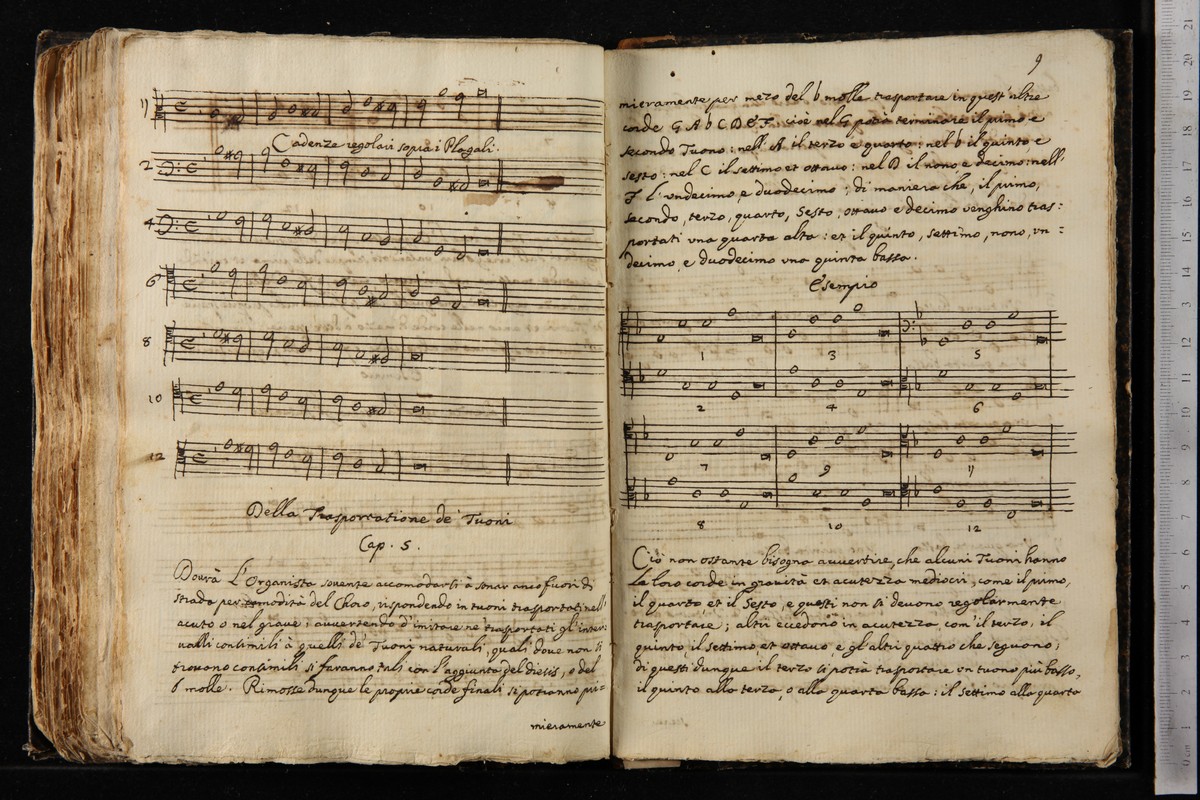 11
Cadenze regolari sopra i Plagali.
2
4
6
8
10
12
Della Trasportatione de' Tuoni
Cap. 5.
Dovrà L'Organista sovente accomodarsi à sonar anco fuori di
strada per comodità del Choro, rispondendo in tuoni trasportati nell'
acuto o nel grave; avvertendo d'imitare ne trasportati gl'inter:
valli consimili à quelli de' Tuoni naturali, quali dove non si
trovano consimili si faranno tali con l'aggiunta del diesis, o del
b molle. Rimosse dunque le proprie corde finali si potranno pri=
mieramente
9
mieramente per mezo del b molle trasportare in quest'altre
corde G A b C D E F, cioè nel G potrà terminare il primo e
secondo Tuono: nell'A il terzo e quarto: nel b il quinto e
sesto: nel C il settimo et ottavo: nel D il nono e decimo: nell'
F L'undecimo, e duodecimo; di maniera che, il primo,
secondo, terzo, quarto, Sesto, ottavo e decimo venghino tras:
portati una quarta alta: et il quinto, settimo, nono, un=
decimo, e duodecimo una quinta bassa.
Esempio
1 3 5
2 4 6
7 9 11
8 10 12
Ciò non ostante bisogna avvertire, che alcuni Tuoni hanno
Le loro corde in gravità et acutezza mediocri, come il primo,
il quarto et il Sesto, e questi non si devono regolarmente
trasportare; altri eccedono in acutezza, com'il terzo, il
quinto il settimo, et ottavo, e gl'altri quattro che seguono;
di questi dunque il terzo si potrà trasportare un tuono più basso,
il quinto alla terza, o alla quarta bassa: il settimo alla quarta